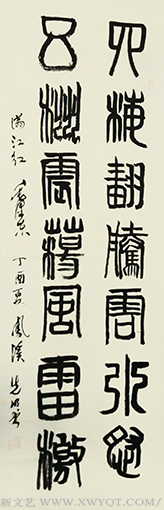 四海翻騰雲水怒
五洲震蕩風雷激
滿江紅 毛澤東 丁酉夏 鳳溪
新文艺 WWW.XWYQT.COM